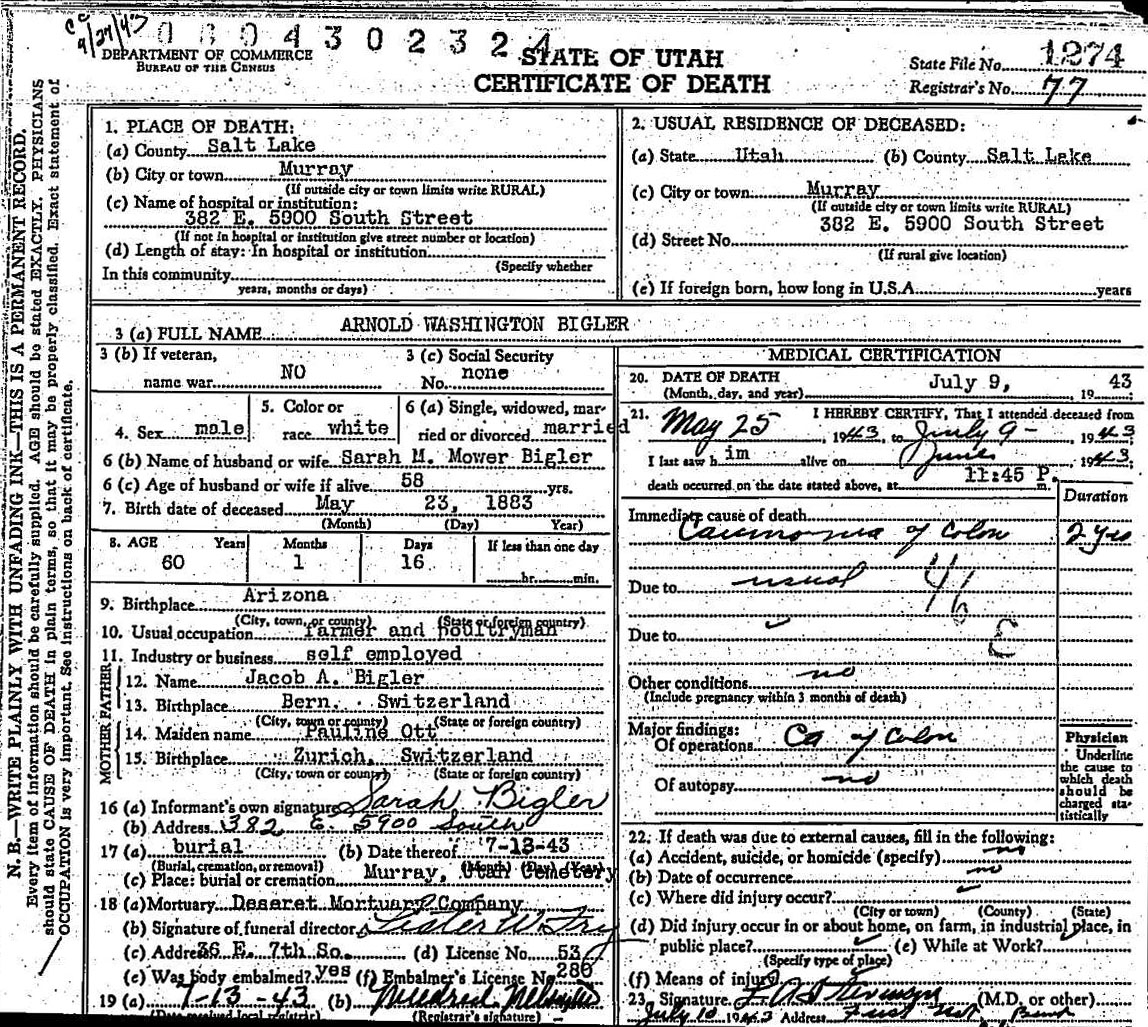 cc
9/27/43
0604302324
DEPARTMENT OF COMMERCE
BUREAU OF THE CENSUS
STATE OF UTAH
CERTIFICATE OF DEATH
State File No. 1274
Registrar's No. 77
N. B.—WRITE PLAINLY WITH UNFADING INK—THIS IS A PERMANENT RECORD.
Every item of information should be carefully supplied. AGE should be stated EXACTLY. PHYSICIANS
should state CAUSE OF DEATH in plain terms, so that it may be properly classified. Exact statement of
OCCUPATION is very important. See instructions on back of certificate.
1. PLACE OF DEATH:
(a) County Salt Lake
(b) City or town Murray
(If outside city or town limits write RURAL)
(c) Name of hospital or institution:
382 E. 5900 South Street
(If not in hospital or institution give street number or location)
(d) Length of stay: In hospital or institution
(Specify whether
In this community
years, months or days)
2. USUAL RESIDENCE OF DECEASED:
(a) State Utah (b) County Salt Lake
(c) City or town Murray
(If outside city or town limits write RURAL)
382 E. 5900 South Street
(d) Street No.
(If rural give location)
(e) If foreign born, how long in U.S.A. years
3 (a) FULL NAME ARNOLD WASHINGTON BIGLER
3 (b) If veteran, 3 (c) Social Security
name war NO No. none
4. Sex male 5. Color or race white 6 (a) Single, widowed, married or divorced married
6 (b) Name of husband or wife Sarah M. Mower Bigler
6 (c) Age of husband or wife if alive 58 yrs.
7. Birth date of deceased May 23, 1883
(Month) (Day) Year)
8. AGE Years Months Days If less than one day
60 1 16 hr. min.
9. Birthplace Arizona
(City, town, or county) (State or foreign country)
10. Usual occupation farmer and poultryman
11. Industry or business self employed
FATHER
12. Name Jacob A. Bigler
13. Birthplace Bern. Switzerland
(City, town or county) (State or foreign country)
MOTHER
14. Maiden name Pauline Ott
15. Birthplace Zurich, Switzerland
(City, town or county) (State or foreign country)
16 (a) Informant's own signature Sarah Bigler
(b) Address 382 E. 5900 South
17 (a) burial (b) Date thereof 7-13-43
(Burial, cremation, or removal) (Month) (Day) (Year)
(c) Place: burial or cremation Murray, Utah Cemetery
18 (a) Mortuary Deseret Mortuary Company
(b) Signature of funeral director
(c) Address 36 E. 7th So. (d) License No. 53
(e) Was body embalmed? yes (f) Embalmer's License No 280
19 (a) 7-13-43 (b) Mildred
(Date received local registrar) (Registrar's signature)
MEDICAL CERTIFICATION
20. DATE OF DEATH July 9, 19 43
(Month, day, and year)
21. I HEREBY CERTIFY, That I attended deceased from
May 25, 1943, to July 9- 1943
I last saw h im alive on June 1943.
death occurred on the date stated above, at 11:45 P. m.
Duration
Immediate cause of death
Carcinoma of Colon 2 yrs
Due to usual 46
Due to E
Other conditions no
(Include pregnancy within 3 months of death)
Major findings:
Of operations Ca of Colon
Of autopsy no
Physician
Underline
the cause to
which death
should be
charged sta-
tistically
22. If death was due to external causes, fill in the following:
(a) Accident, suicide, or homicide (specify) no
(b) Date of occurrence no
(c) Where did injury occur?
(City or town) (County) (State)
(d) Did injury occur in or about home, on farm, in industrial place, in
public place? (e) While at Work?
(Specify type of place)
(f) Means of injury
23. Signature (M.D. or other)
July 10 1943 Address First Nat Bank